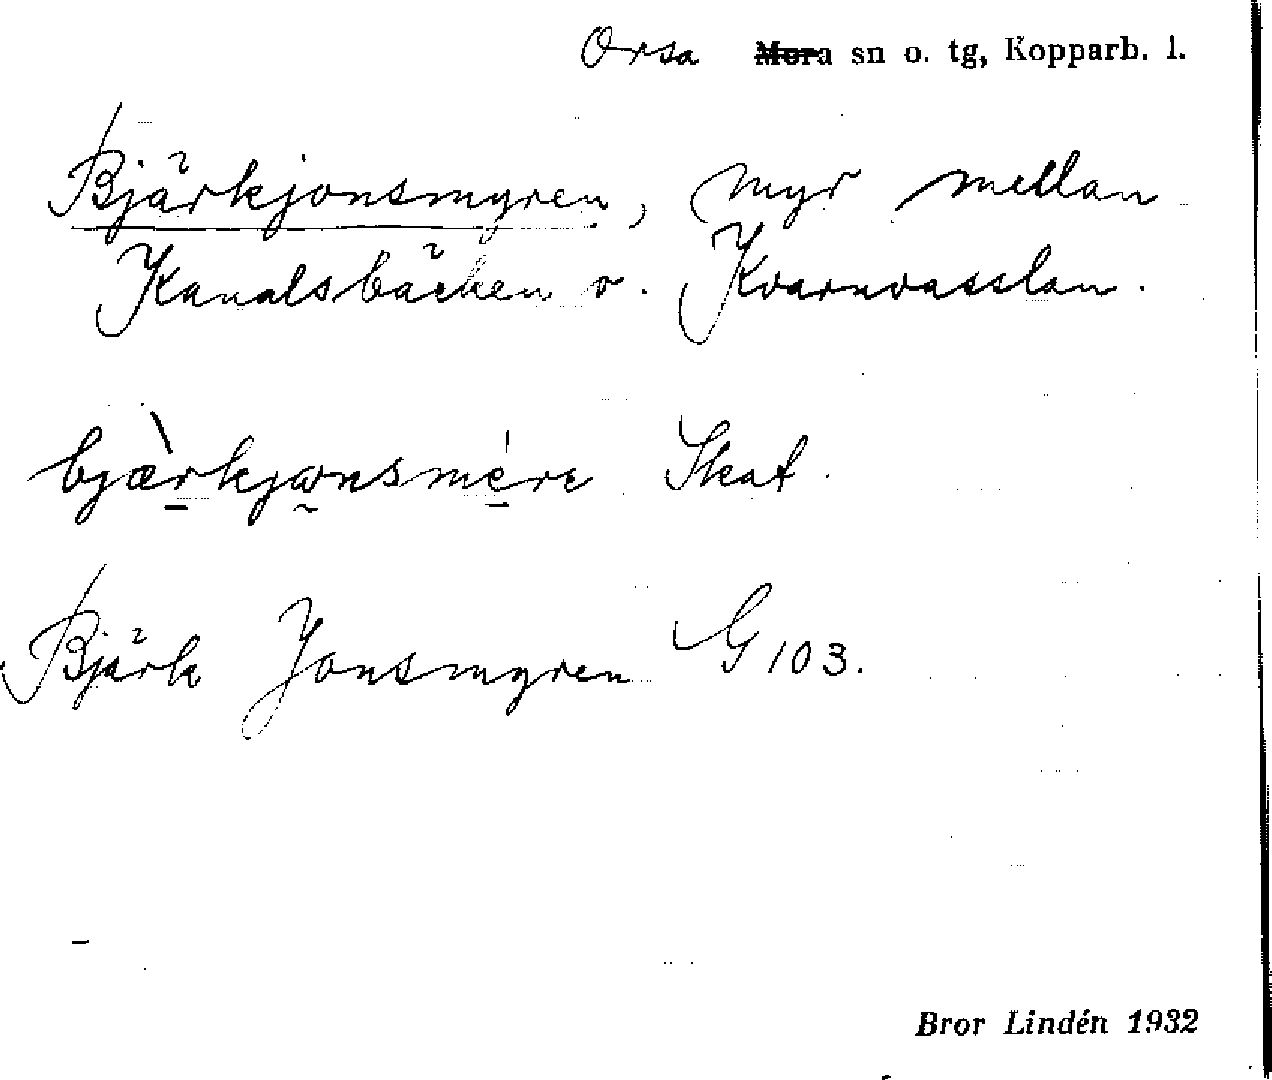 Orsa Mora sn o. tg, Kopparb. l.
Bjärkjonsmyren, myr mellan
Kanalsbäcken o. Kvarnvasslan.
bjæ̀rkjɷnsmére Skat.
Bjärk Jonsmyren G 103.
Bror Lindén 1932